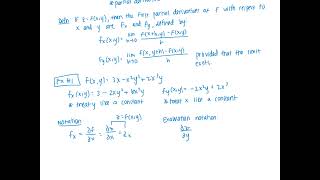 partial derivatives
Defn: If z=f(x,y), then the first partial derivatives of f with respect to
x and y are fx and fy, defined by
fx(x,y) = lim h→0 f(x+h,y)-f(x,y) / h
fy(x,y) = lim h→0 f(x,y+h)-f(x,y) / h provided that the limit exist.
Ex #1 f(x,y) = 3x-x²y²+2x³y
fx(x,y) = 3-2xy²+6x²y fy(x,y) = -2x²y+2x³
* treat y like a constant * treat x like a constant
Notation z=f(x,y) Evaluation notation
fx = ∂f/∂x = ∂z/∂x = zx